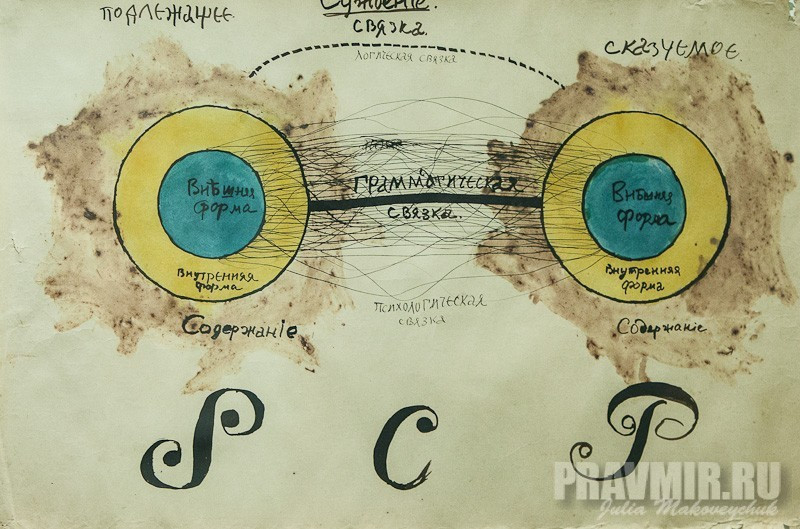 Подлежащее.
Сужденіе.
связка.
логическая связка
сказуемое.
грамматическая
связка.
Внѣшняя
форма
Внутренняя
форма
Содержаніе
Внѣшняя
форма
Внутренняя
форма
Содержаніе
психологическая
связка
S C P
PRAVMIR.RU
Julia Makoveychuk